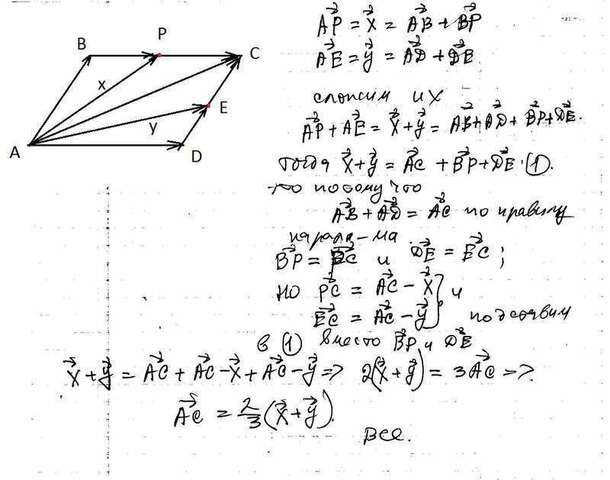 B P C
x
E
y
A D
AP = x = AB + BP
AE = y = AD + DE
сложим их
AP + AE = x + y = AB + AD + BP + DE.
тогда x + y = AC + BP + DE. ①.
потому что
AB + AD = AC по правилу
парал-ма.
BP = PC и DE = EC;
но PC = AC - x } и
EC = AC - y } подставим
в ① вместо BP и DE
x + y = AC + AC - x + AC - y => 2(x + y) = 3AC =>.
AC = 2/3 (x + y).
Все.